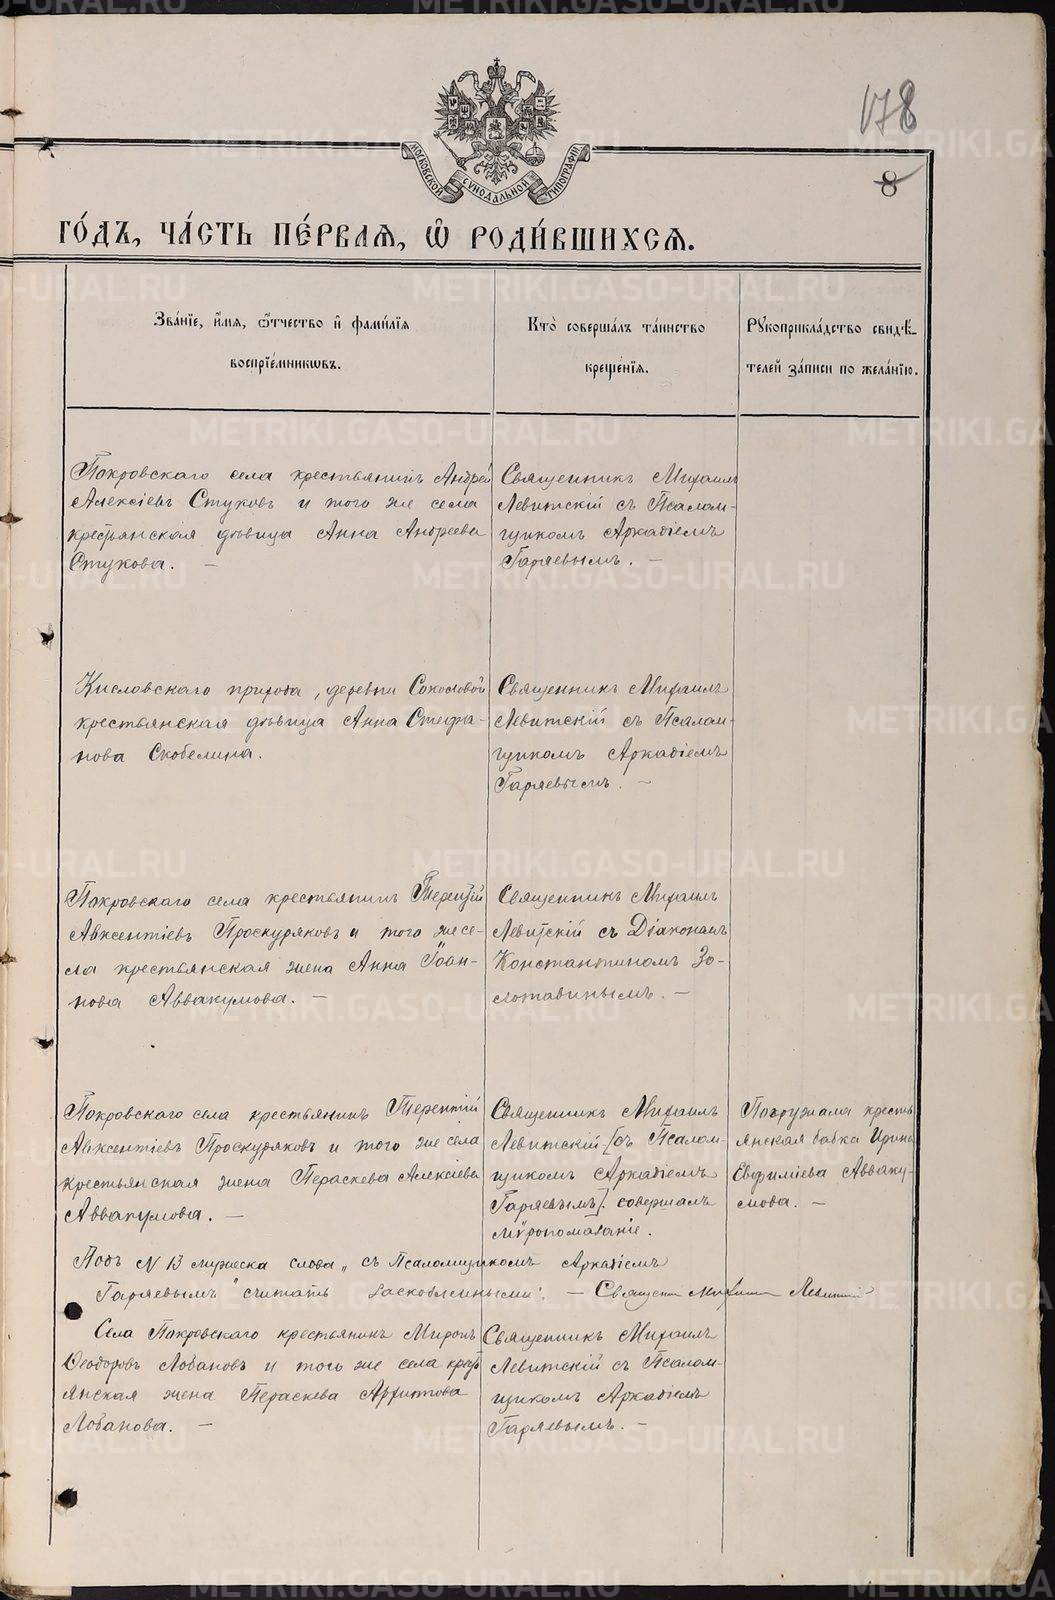 178
8
МОСКОВСКОЙ СѴНОДАЛЬНОЙ ТИПОГРАФІИ
ГО́ДЪ, ЧА́СТЬ ПЕ́РВАѦ, Ѿ РОДИ́ВШИХСѦ.
Зва́нїе, и҆́мѧ, ѻ҆́тчество и҆ фами́лїѧ
воспрїе́мникѡвъ.
Кто̀ соверша́лъ та́инство
креще́нїѧ.
Рꙋкоприкла́дство свидѣ́-
телей за́писи по жела́нїю.
Покровскаго села крестьянинъ Андрей
Алексіевъ Стуковъ и того же села
крестьянская дѣвица Анна Андреева
Стукова. —
Священникъ Михаилъ
Левитскій съ Псалом-
щикомъ Аркадіемъ
Гаряевымъ. —
Кисловскаго прихода, деревни Соколовой
крестьянская дѣвица Анна Стефа-
нова Скобелина.
Священникъ Михаилъ
Левитскій съ Псалом-
щикомъ Аркадіемъ
Гаряевымъ. —
Покровскаго села крестьянинъ Терентій
Авксентіевъ Проскуряковъ и того же се-
ла крестьянская жена Анна Іоан-
нова Аввакумова. —
Священникъ Михаилъ
Левитскій съ Діакономъ
Константиномъ Зо-
лотавинымъ. —
Покровскаго села крестьянинъ Терентій
Авксентіевъ Проскуряковъ и того же села
крестьянская жена Параскева Алексіева
Аввакумова. —
Священникъ Михаилъ
Левитскій [съ Псалом-
щикомъ Аркадіемъ
Гаряевымъ]. совершалъ
мѵропомазаніе.
Погружала кресть
янская бабка Ирина
Евфиміева Авваку-
мова. —
Подъ N 13 слова „съ Псаломщикомъ Аркадіемъ
Гаряевымъ" считать заскобленными. — Священ. Михаилъ Левитскій
Села Покровскаго крестьянинъ Миронъ
Ѳеодоровъ Лобановъ и того же села крест
янская жена Параскева
Лобанова. —
Священникъ Михаилъ
Левитскій съ Псалом-
щикомъ Аркадіемъ
Гаряевымъ. —
METRIKI.GASO-URAL.RU